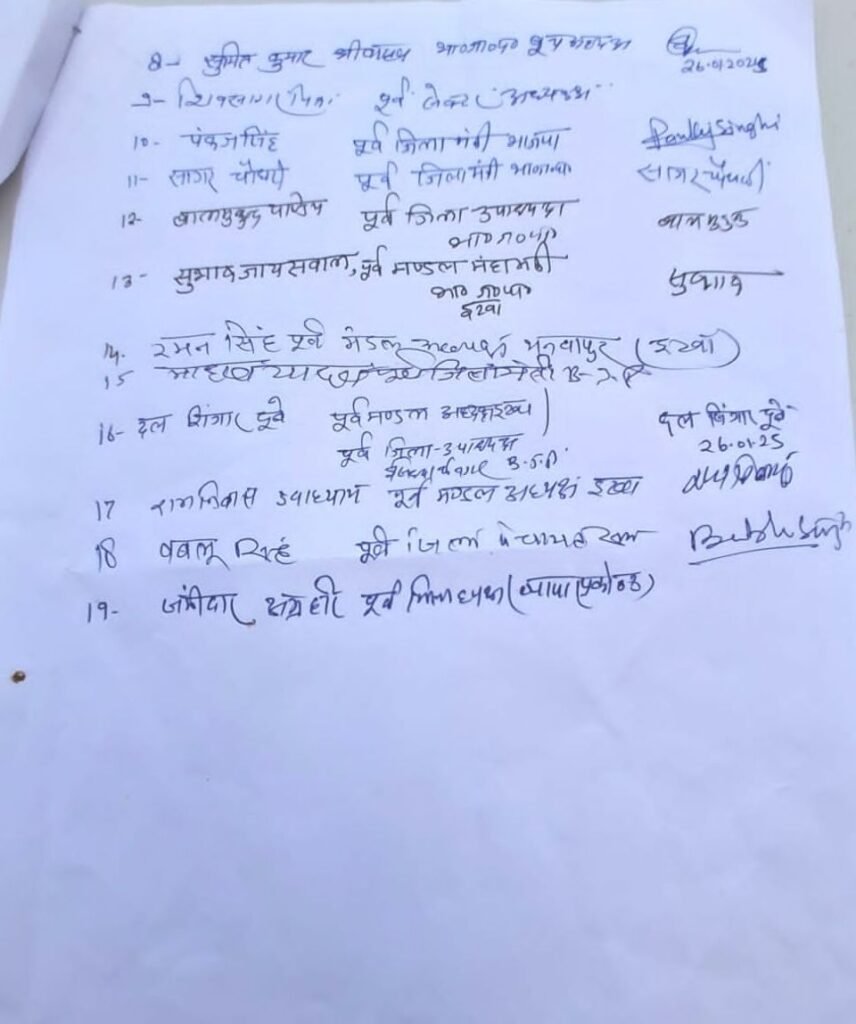 8- सुमित कुमार श्रीवास्तव भा०ज०पा० बूथ अध्यक्ष 26.01.2025
9- पूर्व सेक्टर अध्यक्ष
10- पंकज सिंह पूर्व जिला मंत्री भाजपा Pankaj Singh
11- सागर चौधरी पूर्व जिला मंत्री भाजपा सागर चौधरी
12- बालमुकुन्द पाण्डेय पूर्व जिला उपाध्यक्ष बालमुकुन्द
भा०ज०पा०
13- सुभाष जायसवाल, पूर्व मण्डल महामंत्री सुभाष
भा० ज०पा०
इटवा
14. रमन सिंह पूर्व मंडल अध्यक्ष (इटवा)
15 माधव यादव पूर्व जिला मंत्री B-J.P
16- दल सिंगार दूबे पूर्व मण्डल अध्यक्ष इटवा दल सिंगार दूबे
पूर्व जिला-उपाध्यक्ष 26.01.25
B.J.P.
17 रामनिवास उपाध्याय पूर्व मण्डल अध्यक्ष इटवा
18 बबलू सिंह पूर्व जिला पंचायत सदस्य Bablu Singh
19- अग्रहरि पूर्व जिलाध्यक्ष (व्यापार प्रकोष्ठ)